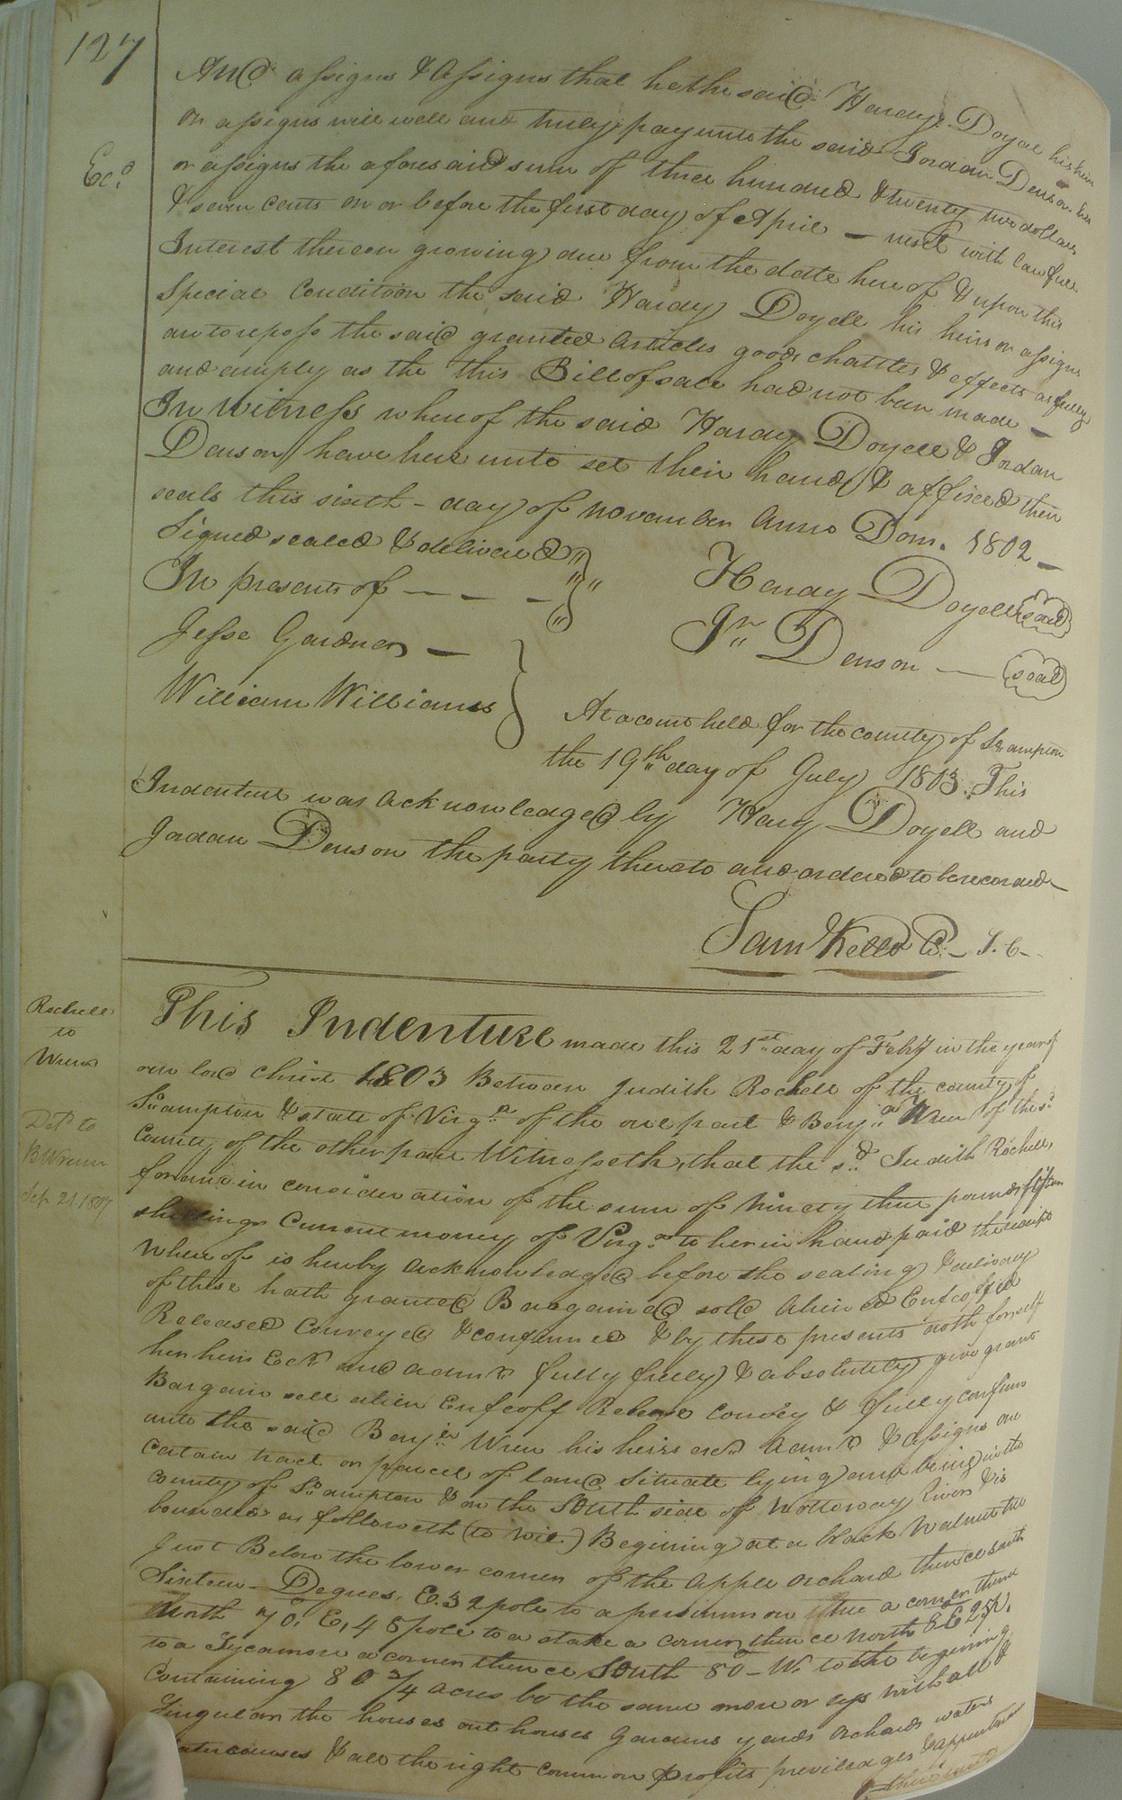 127
And assigns & assigns that he the said Hardy Doyal his heirs
or assigns will well and truly pay unto the said Jordan Denson his
Ecd.
or assigns the aforesaid sum of three hundred & twenty two dollars
& seven cents on or before the first day of April — next with lawfull
Interest thereon growing due from the date hereof & upon this
special Condition the said Hardy Doyell his heirs or assigns
are to reposs the said granted Articles goods chattles & effects as fully
and amply as the this Bill of sale had not been made —
In Witness whereof the said Hardy Doyell & Jordan
Denson have here unto set their hands & affixed their
seals this sixth - day of november Anno Dom. 1802 —
Signed sealed & delivered
In presents of — — —
Henry Doyell seal
Jesse Gardner —
Jn Denson — seal
William Williams
At a court held for the county of So ampton
the 19th day of July 1803. This
Indenture was acknowledged by Hary Doyell and
Jordan Denson the party thereto and ordered to be recorded —
Sam Kello C. — S. C —
Rochell
to
Wrenn
Deld to
B Wrenn
Sep 21 1807
This Indenture made this 21st day of Feby in the year of
our lord Christ 1803 Between Judith Rochell of the county of
So ampton & state of Virga of the one part & Benja Wren of the sd
County of the other part Witnesseth, that the sd Judith Rochell,
for and in consideration of the sum of Ninety three pounds fifteen
shillings Current money of Virga to her in hand paid the receipt
where of is hereby acknowledged before the sealing & delivery
of these hath granted Bargained sold Aliened Enfeoffed
Released Conveyed & confirmed & by these presents doth for self
her heirs Ecrs and admrs fully freely & absolutely give grant
Bargain sell alien Enfeoff Release Convey & fully confirm
unto the said Benjn Wren his heirs Admrs & assigns one
certain tract or parcel of land Situate lying and being in the
county of So ampton & on the South side of Nottoway River & is
bounded as followeth (to wit.) Begining at a black Walnut tree
Just Below the lower corner of the Apple orchard thence south
Sixteen — Degrees, E. 32 pole to a persimmon tree a corner thence
North 70. E, 48 pole to a stake a corner thence North E 25 p.
to a Sycamore a corner thence South 80 — W. to the begining
Containing 80 3/4 acres be the same more or less with all &
Singular the houses out houses Gardens yards Orchards waters
watercourses & all the right common profits previlages & appurtenan